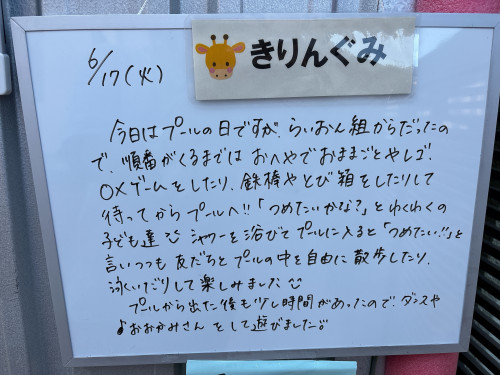 きりんぐみ
6/17(火)
今日はプールの日ですが、らいおん組からだったの
で、順番がくるまでは おへやでおままごとやレゴ、
OXゲームをしたり、鉄棒やとび箱をしたりして
待ってからプールへ!!「つめたいかな?」とわくわくの
子ども達 シャワーを浴びてプールに入ると「つめたい!!」と
言いつつも友だちとプールの中を自由に散歩したり、
泳いだりして楽しみました
プールから出た後も少し時間があったので、ダンスや
♪おおかみさん をして遊びました